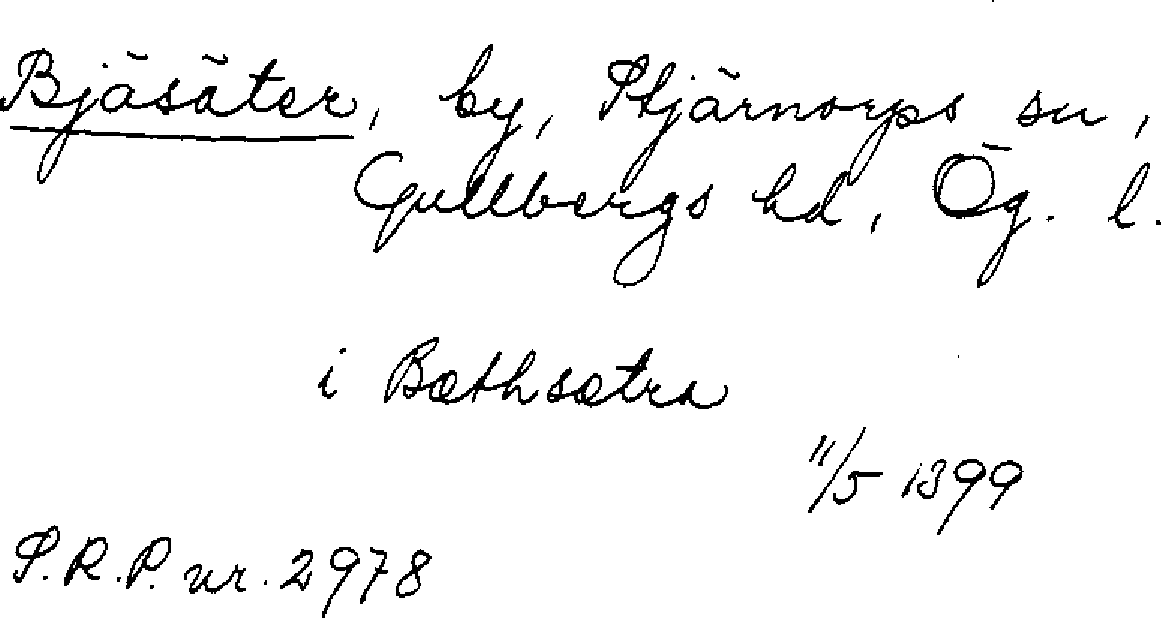 Bjäsäter, by, Stjärnorps sn,
Gullbergs hd, Ög. l.
i Bæthsætra
11/5 1399
S.R.P. nr. 2978